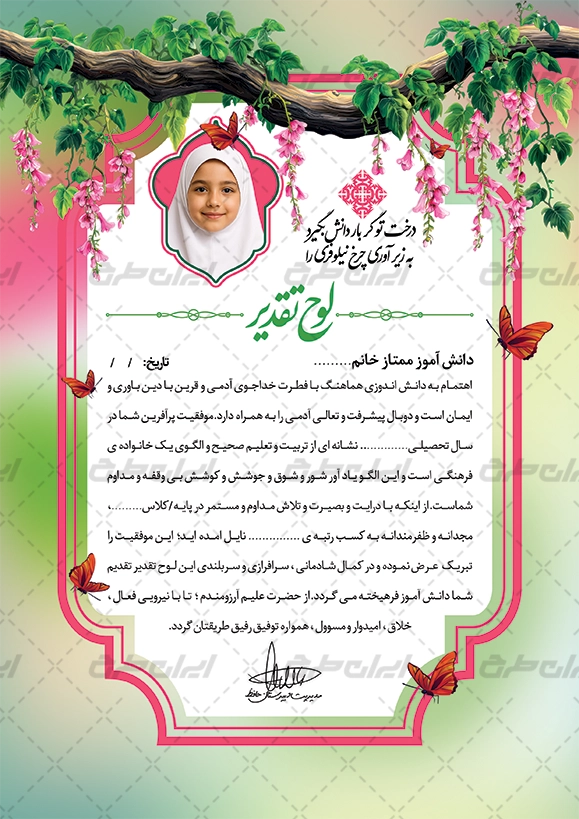 درخت تو گر بار دانش بگیرد
به زیر آوری چرخ نیلوفری را
لوح تقدیر
دانش آموز ممتاز خانم.........
تاریخ: / /
اهتمام به دانش اندوزی هماهنگ با فطرت خداجوی آدمی و قرین با دین باوری و
ایمان است و دوبال پیشرفت و تعالی آدمی را به همراه دارد.موفقیت پرآفرین شما در
سال تحصیلی............. نشانه ای از تربیت و تعلیم صحیح و الگوی یک خانواده ی
فرهنگی است و این الگو یاد آور شور و شوق و جوشش و کوشش بی وقفه و مداوم
شماست.از اینکه با درایت و بصیرت و تلاش مداوم و مستمر در پایه/کلاس.........،
مجدانه و ظفرمندانه به کسب رتبه ی ............... نایل امده اید؛ این موفقیت را
تبریک عرض نموده و در کمال شادمانی ، سرافرازی و سربلندی این لوح تقدیر تقدیم
شما دانش آموز فرهیخته می گردد.از حضرت علیم آرزومندم ؛ تا با نیرویی فعال ،
خلاق ، امیدوار و مسوول ، همواره توفیق رفیق طریقتان گردد.
مدیریت دبیرستان حافظ
ایران طرح